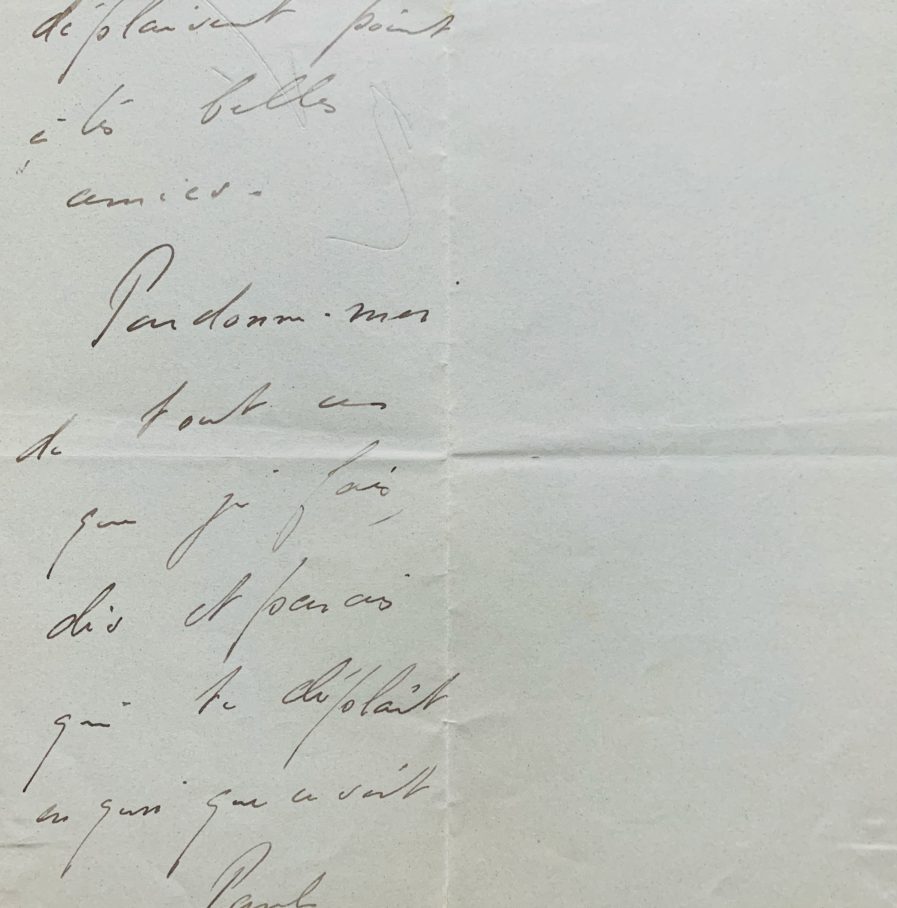 déplaisent point
à tes belles
amies.
Pardonne-moi
de tout ce
que je fais,
dis et parais
qui te déplaît
en quoi que ce soit
Paul